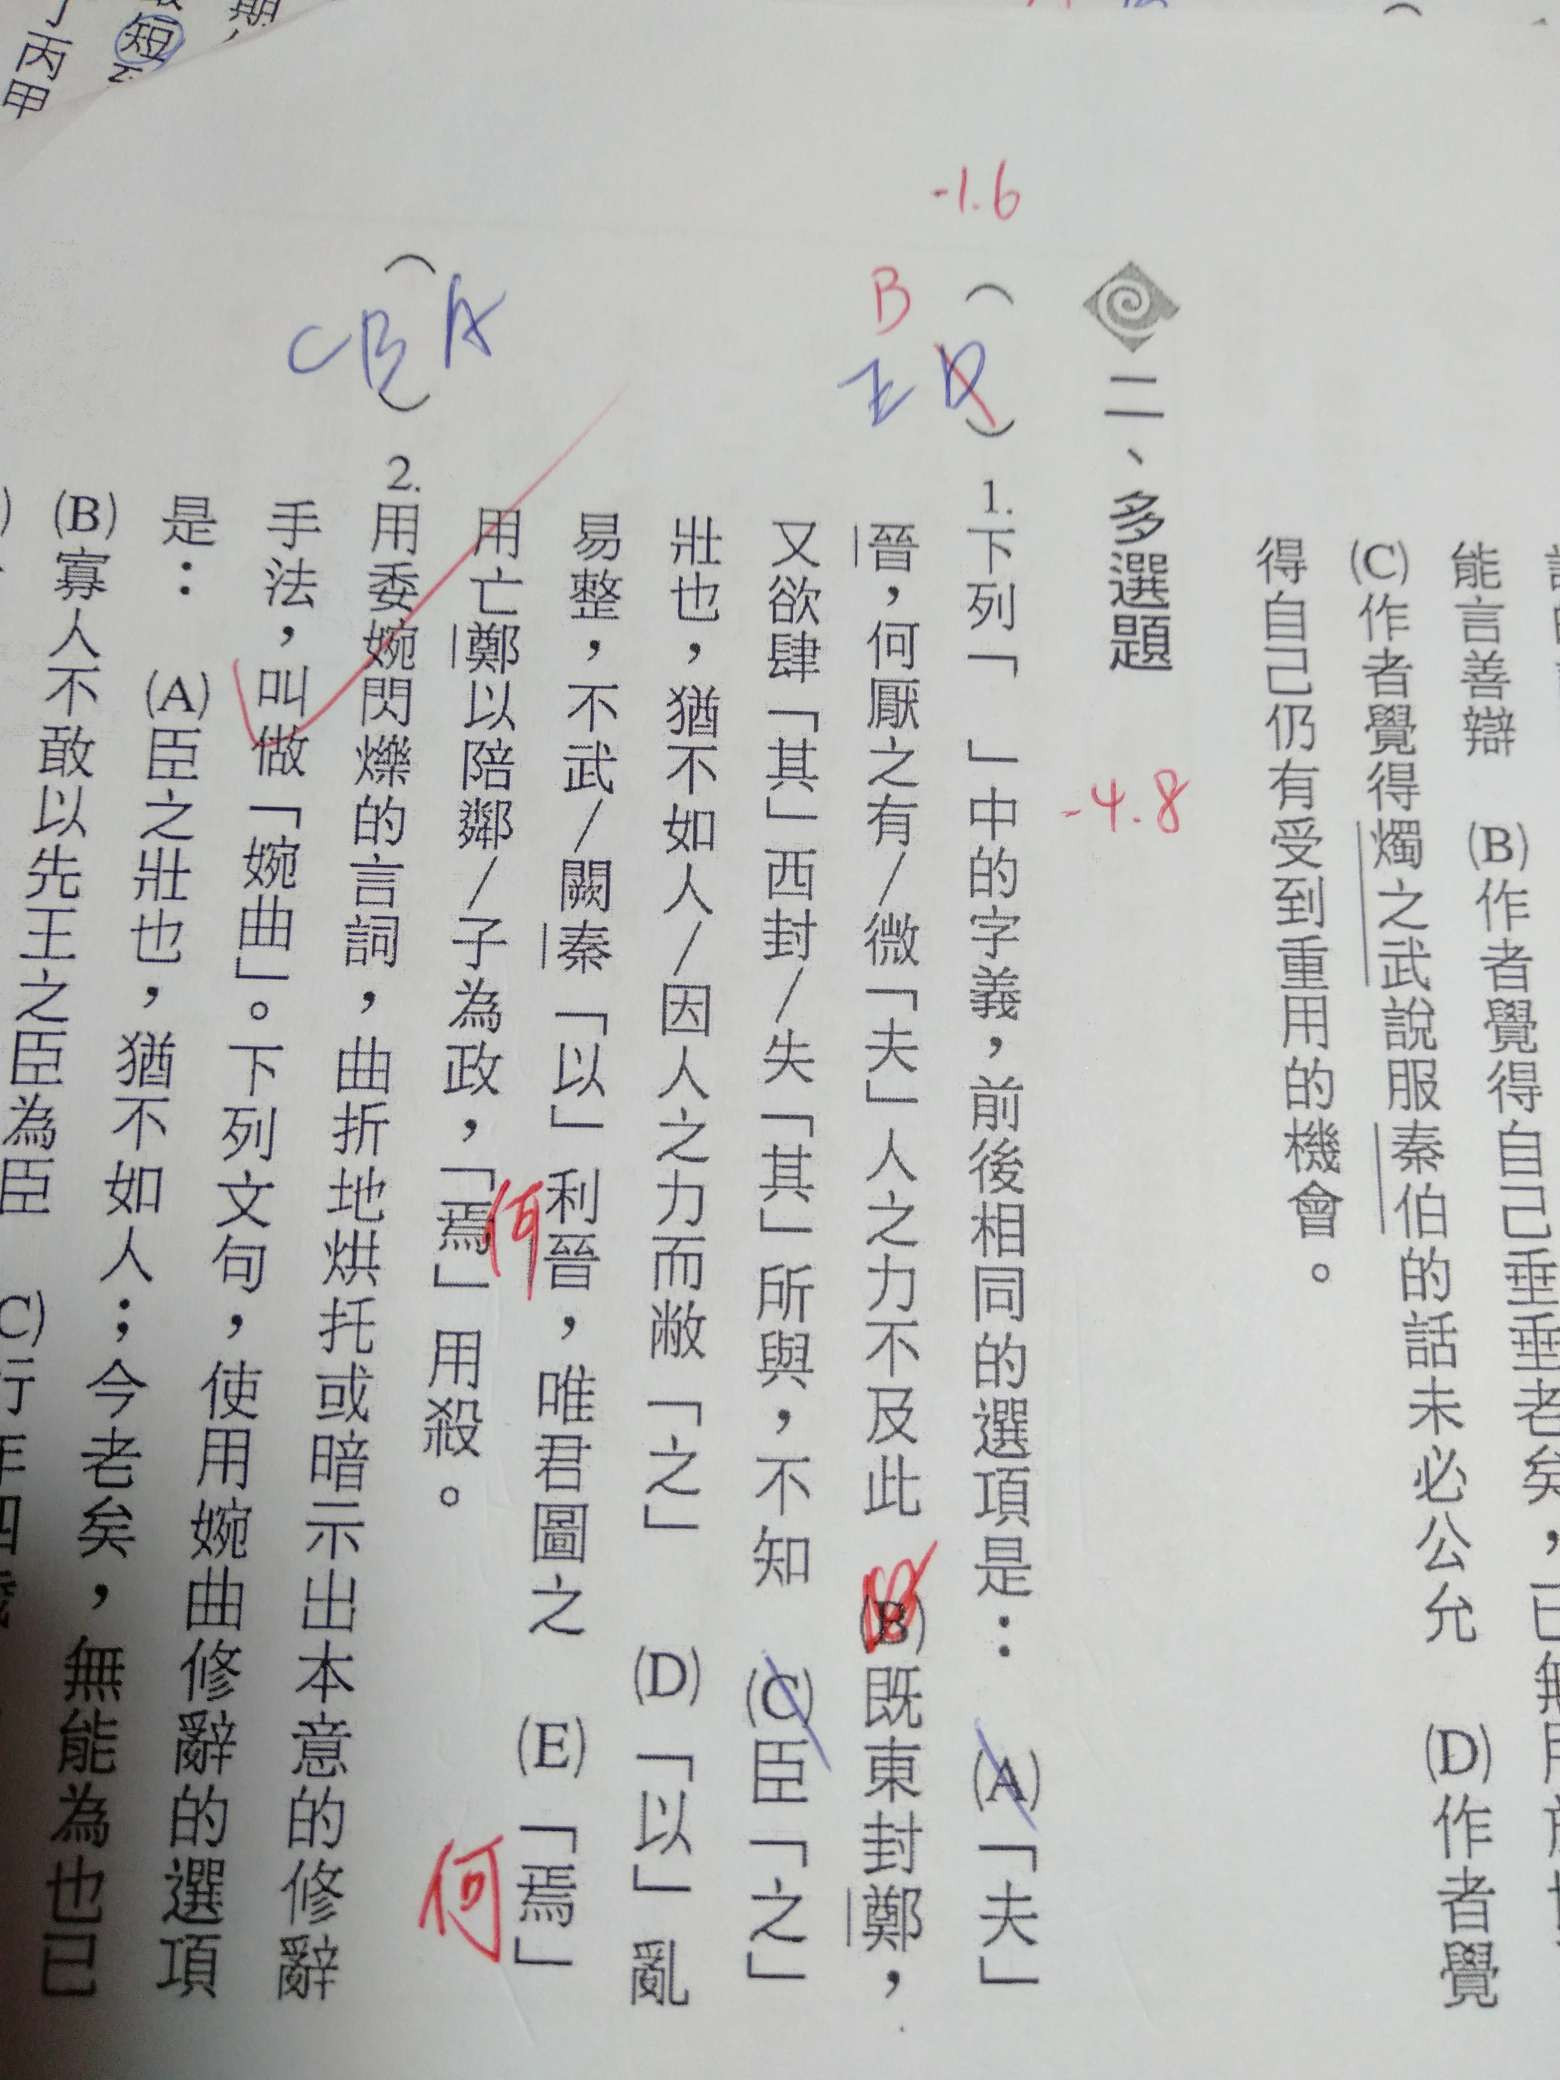 能言善辯　(B)作者覺得自己垂垂老矣，已無用
(C)作者覺得燭之武說服秦伯的話未必公允　(D)作者覺
得自己仍有受到重用的機會。
二、多選題
-4.8
-1.6
(D)1.下列「　」中的字義，前後相同的選項是：　(A)「夫」
B E
晉，何厭之有/微「夫」人之力不及此　(B)既東封鄭，
又欲肆「其」西封/失「其」所與，不知　(C)臣「之」
壯也，猶不如人/因人之力而敝「之」　(D)「以」亂
易整，不武/闕秦「以」利晉，唯君圖之　(E)「焉」
用亡鄭以陪鄰/子為政，「焉」用殺。
何
何
(ABC)2.用委婉閃爍的言詞，曲折地烘托或暗示出本意的修辭
手法，叫做「婉曲」。下列文句，使用婉曲修辭的選項
是：　(A)臣之壯也，猶不如人；今老矣，無能為也已
(B)寡人不敢以先王之臣為臣　(C)行年四
短
丙
甲
期